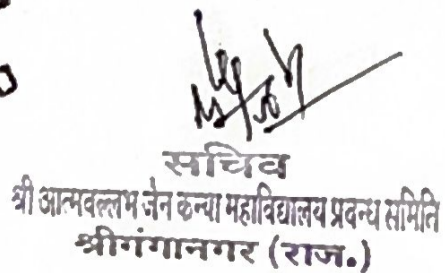 सचिव
श्री आत्मवल्लभ जैन कन्या महाविद्यालय प्रबन्ध समिति
श्रीगंगानगर (राज.)